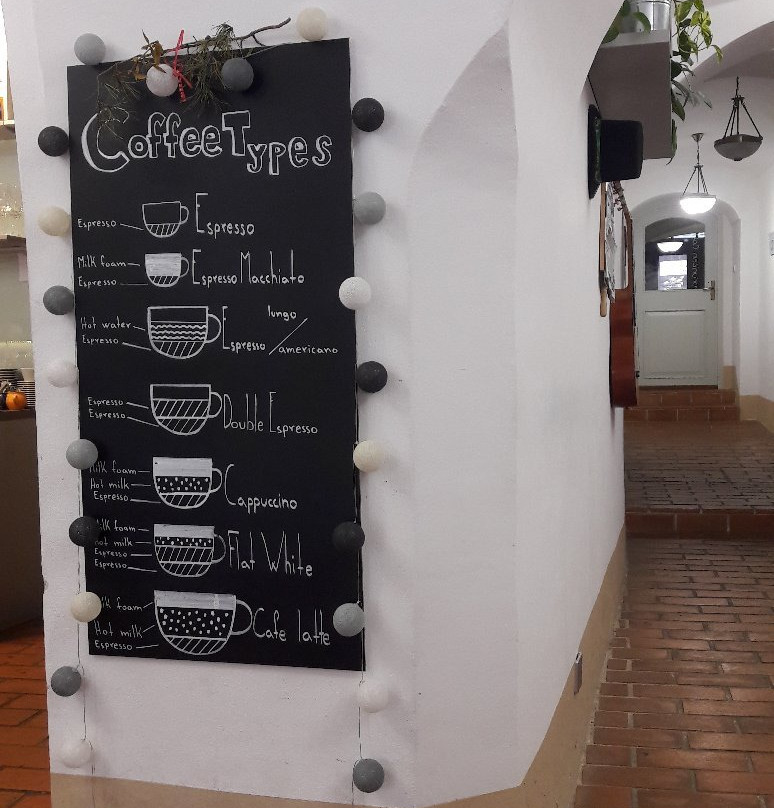 Coffee Types
Espresso
Espresso
Milk foam
Espresso
Espresso Macchiato
Hot water
Espresso
lungo
Espresso / americano
Espresso
Espresso
Double Espresso
Milk foam
Hot milk
Espresso
Cappuccino
Milk foam
Hot milk
Espresso
Espresso
Flat White
lk foam
Hot milk
Espresso
Cafe latte